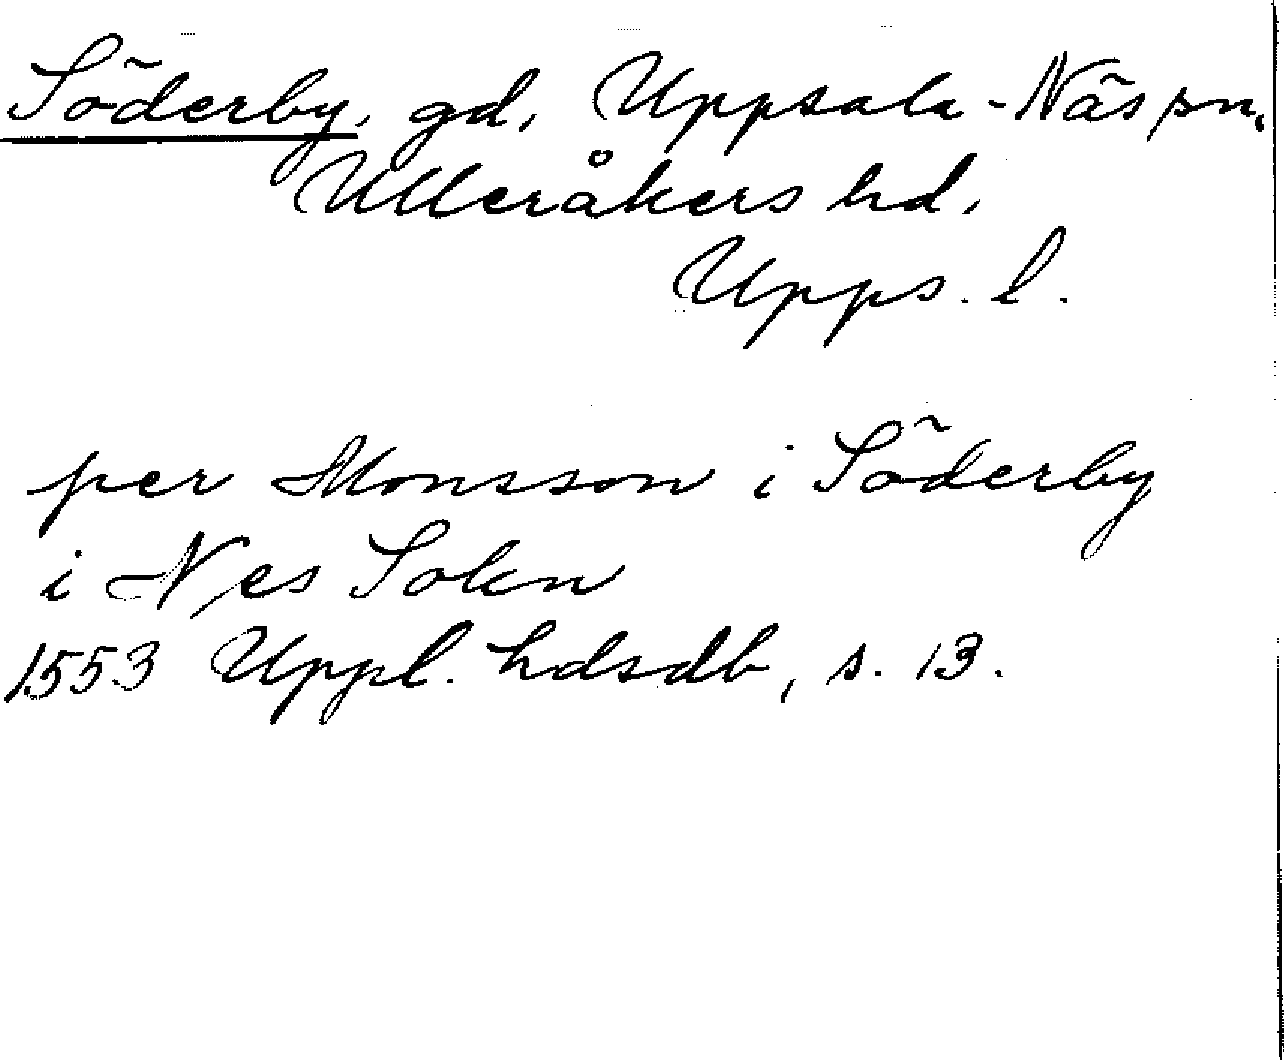 Söderby, gd, Uppsala-Näs sn,
Ulleråkers hd,
Upps. l.
per Monsson i Söderby
i Nes Sokn
1553 Uppl. hdsdb, s. 13.